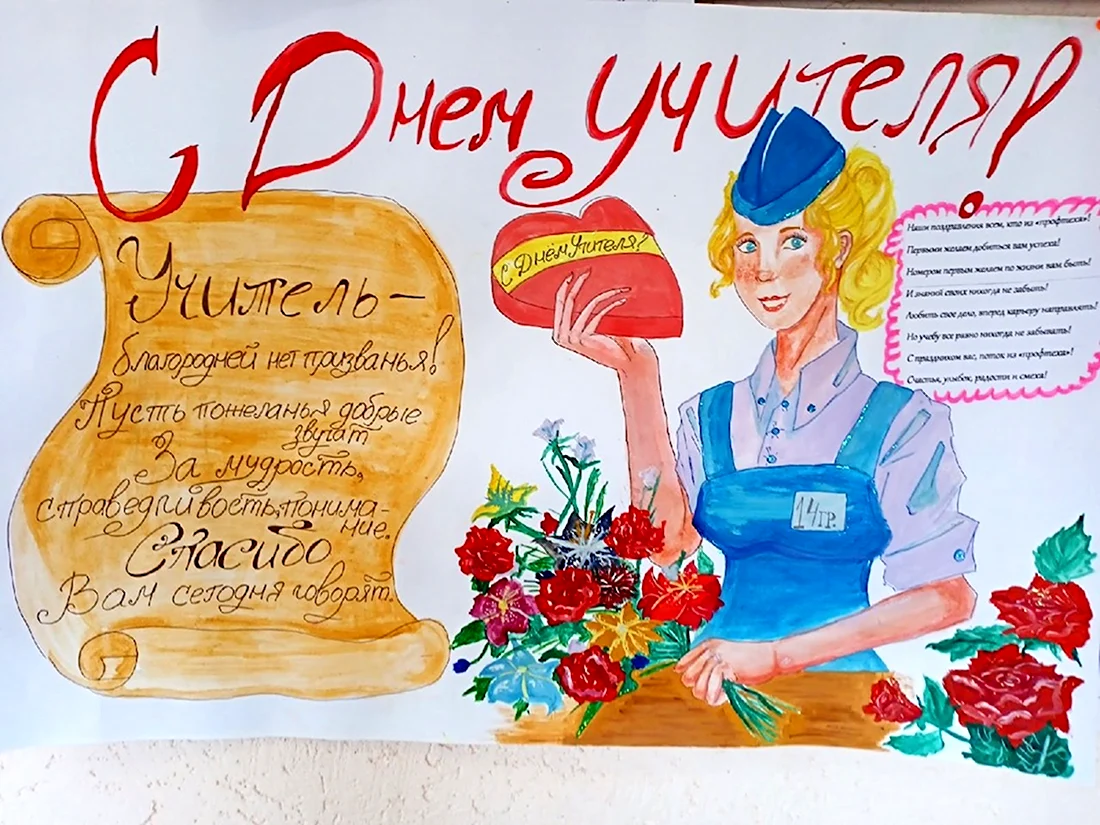 С Днем учителя!
Учитель –
благородней нет призванья!
Пусть пожеланья добрые
звучат
За мудрость,
справедливость, понима-
ние.
Спасибо
Вам сегодня говорят.
С Днём Учителя!
14 гр.
Наши поздравления всем, кто из «профтеха»!
Первыми желаем добиться вам успеха!
Номером первым желаем по жизни вам быть!
И знаний своих никогда не забыть!
Любить свое дело, вперед карьеру направлять!
Но учебу все равно никогда не забывать!
С праздником вас, поток из «профтеха»!
Счастья, улыбок, радости и смеха!